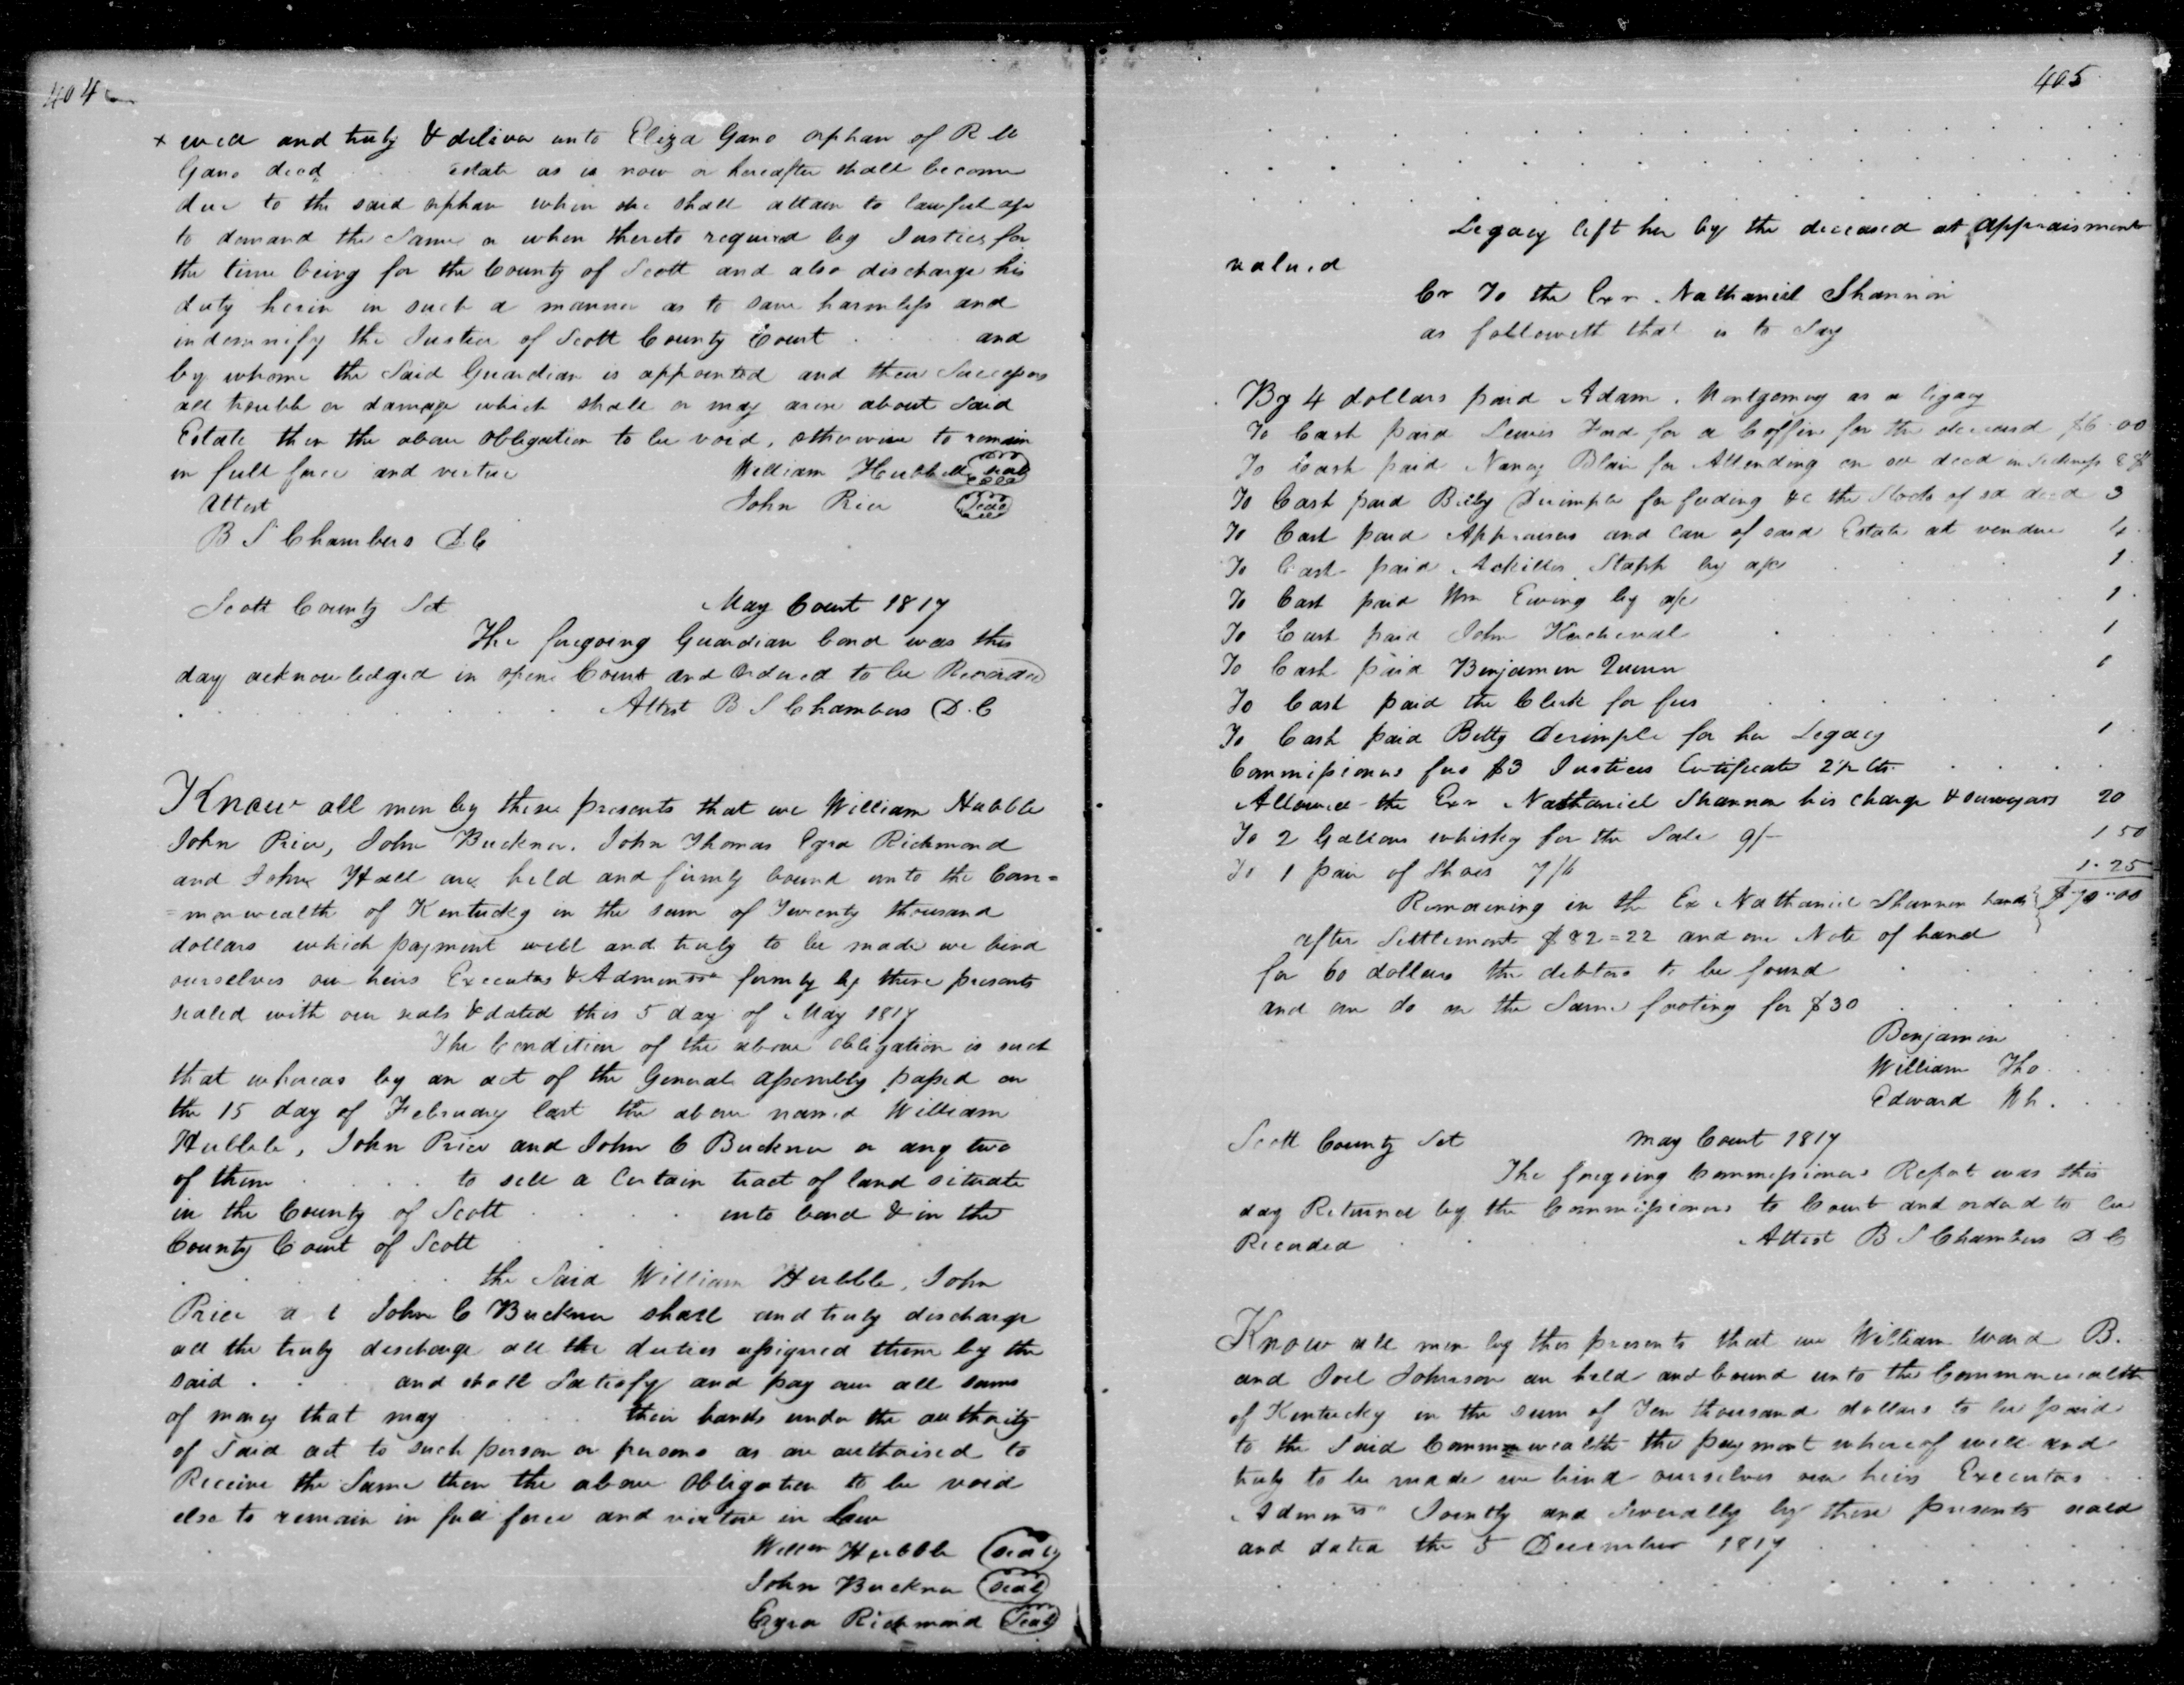 404
x well and truly & deliver unto Eliza Gano orphan of R M
Gano decd . . . estate as is now or hereafter shall become
due to the said orphan when she shall attain to lawful age
to demand the Same or when thereto required by Justices for
the time being for the County of Scott and also discharge his
duty herein in such a manner as to save harmless and
indemnify the Justices of Scott County Court . . . . and
by whome the Said Guardian is appointed and their Successors
all trouble or damage which shall or may arise about Said
Estate then the above Obligation to be void, otherwise to remain
in full force and virtue William Hubbell seal
Attest John Rice Seal
B S Chambers D C
Scott County Sct May Court 1817
The foregoing Guardian bond was this
day acknowledged in open Court and Ordered to be Recorded
Attest B S Chambers D. C
Know all men by these presents that we William Hubble
John Price, John Buckner, John Thomas Ezra Richmond
and John Hall are held and firmly bound unto the Com=
=monwealth of Kentucky in the sum of Twenty thousand
dollars which payment well and truly to be made we bind
ourselves our heirs Executors & Admin firmly by these presents
sealed with our seals & dated this 5 day of May 1817
The Condition of the above obligation is such
that whereas by an act of the General Assembly passed on
the 15 day of February last the above named William
Hubble, John Price and John C Buckner or any two
of them . . . . to sell a Certain tract of land situate
in the County of Scott . . . . . into bond & in the
County Court of Scott . . .
. . . . . . the Said William Hubble, John
Price a d John C Buckner shall and truly discharge
all the truly discharge all the duties assigned them by the
said . . . and shall Satisfy and pay over all sums
of money that may . . . . their hands under the authority
of Said act to such person or persons as are authorised to
Receive the Same then the above Obligation to be void
else to remain in full force and virtue in Law
William Hubble seal
John Buckner seal
Ezra Richmond Seal
405
Legacy left her by the deceased at appraisment
valued
Cr To the Exr. Nathaniel Shannon
as followeth that is to Say
By 4 dollars paid Adam Montgomery as a legacy
To Cash paid Lewis Ford for a Coffin for the deceased $6.00
To Cash paid Nancy Blair for Attending on sd decd in sickness 8
To Cash paid Betty Derimple for feeding &c the Stock of sd decd 3
To Cash paid Appraisers and care of said Estate at vendue 4.
To Cash paid Achilles Stapp by a/c . . . 1.
To Cash paid Wm Ewing by a/c . . . 1.
To Cash paid John Kercheval . . . 1
To Cash paid Benjamin Quinn 1
To Cash paid the Clerk for fees . . . .
To Cash paid Betty Derimple for her Legacy 1.
Commissioners fees $3 Justices Certificate 2/ Cts. . . . .
Allowed the Exr Nathaniel Shannon his charge & 20
To 2 Gallons whiskey for the Sale 9/- 1.50
To 1 pair of Shoes 7/6 1.25
Remaining in the Ex Nathaniel Shannon hands $70.00
after Settlement $82=22 and one Note of hand
for 60 dollars the debtors to be found . . . .
and one do on the Same footing for $30 . . . .
Benjamin . .
William Tho . . . .
Edward Wh . . . .
Scott County Sct May Court 1817
The foregoing Commissioners Report was this
day Returned by the Commissioners to Court and ordered to be
Recorded . . . . Attest B S Chambers D C
Know all men by these presents that we William Ward B.
and Joel Johnson are held and bound unto the Commonwealth
of Kentucky in the sum of Ten thousand dollars to be paid
to the Said Commonwealth the payment whereof well and
truly to be made we bind ourselves our heirs Executors
Admin Jointly and Severally by these presents seald
and dated the 5 December 1817 . . . . . .